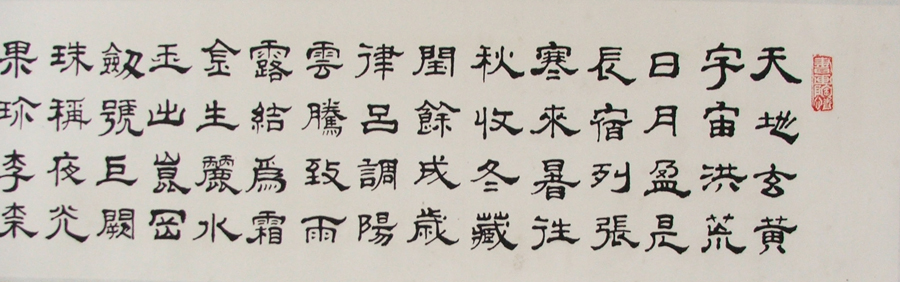 天地玄黃
宇宙洪荒
日月盈昃
辰宿列張
寒來暑往
秋收冬藏
閏餘成歲
律呂調陽
雲騰致雨
露結爲霜
金生麗水
玉出崑岡
劒號巨闕
珠稱夜光
果珍李柰